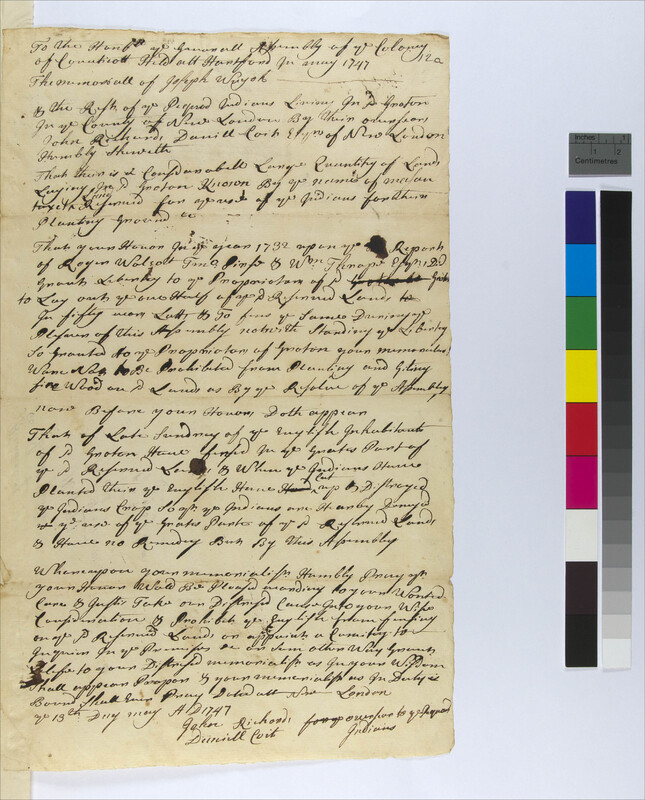 To the Honble ye Generall Assembly of ye Colony 12a
of Connticott Held att Hartford In may 1747
The memoriall of Joseph Wyok
& the Rest of ye Pequod Indians Living In sd Groton
In ye County of New London By their overseers
John Richards Daniell Coit Esqrs of New London
Humbly Sheweth
That their is a Considarabell Large Quantity of Land
Laying In sd Groton Known By ye name of
Reserved for ye use of ye Indians for their
Planting Ground &c
That your Honors In ye year 1732 upon ye Report
of Roger Wolcott & Wm Esqrs Did
Grant Liberty to ye Proprietors of sd Groton
to Lay out ye one Half of ye sd Reserved Lands
In fifty acre Lotts & To fence ye Same During ye
Pleasure of this Assembly notwith Standing ye Liberty
So Granted to ye Proprietors of Groton your memorialists
Ware Not to Be Prohibited from Planting and Geting
fire Wood on sd Lands as By ye Resolve of ye Assembly
now Before your Honors Doth appear
That of Late Sundrey of ye English Inhabitants
of sd Groton Have fenced In ye Greates Part of
ye sd Reserved Lands & When ye Indians Have
Planted their ye English Have Cut up & Distroyed
ye Indians Crop So yt ye Indians are Hereby Denyed
ye use of ye Greates Parte of ye sd Reserved Lands
& Have no Remedey But By this Assembly
Whereupon your memorialists Humbly Pray yt
your Honors Wold Be Pleased acording to your Wonted
Care & Justis Take our Distresed Cause Into your Wise
Consideration & Prohibit ye English from fencing
on ye sd Reserved Lands or appoint a Comitey to
Inquier In ye Premises &c or in Sum other Way Grant
Relese to your Distresed memorialists as In your Wisdom
Shall appear Proper & your memorialists as In Duty is
Bound Shall Ever Pray Dated att New London
ye 13th Day may A D 1747
John Richards overseers to ye Pequod
Daniell Coit Indians
Inches 1
1 2
Centimetres